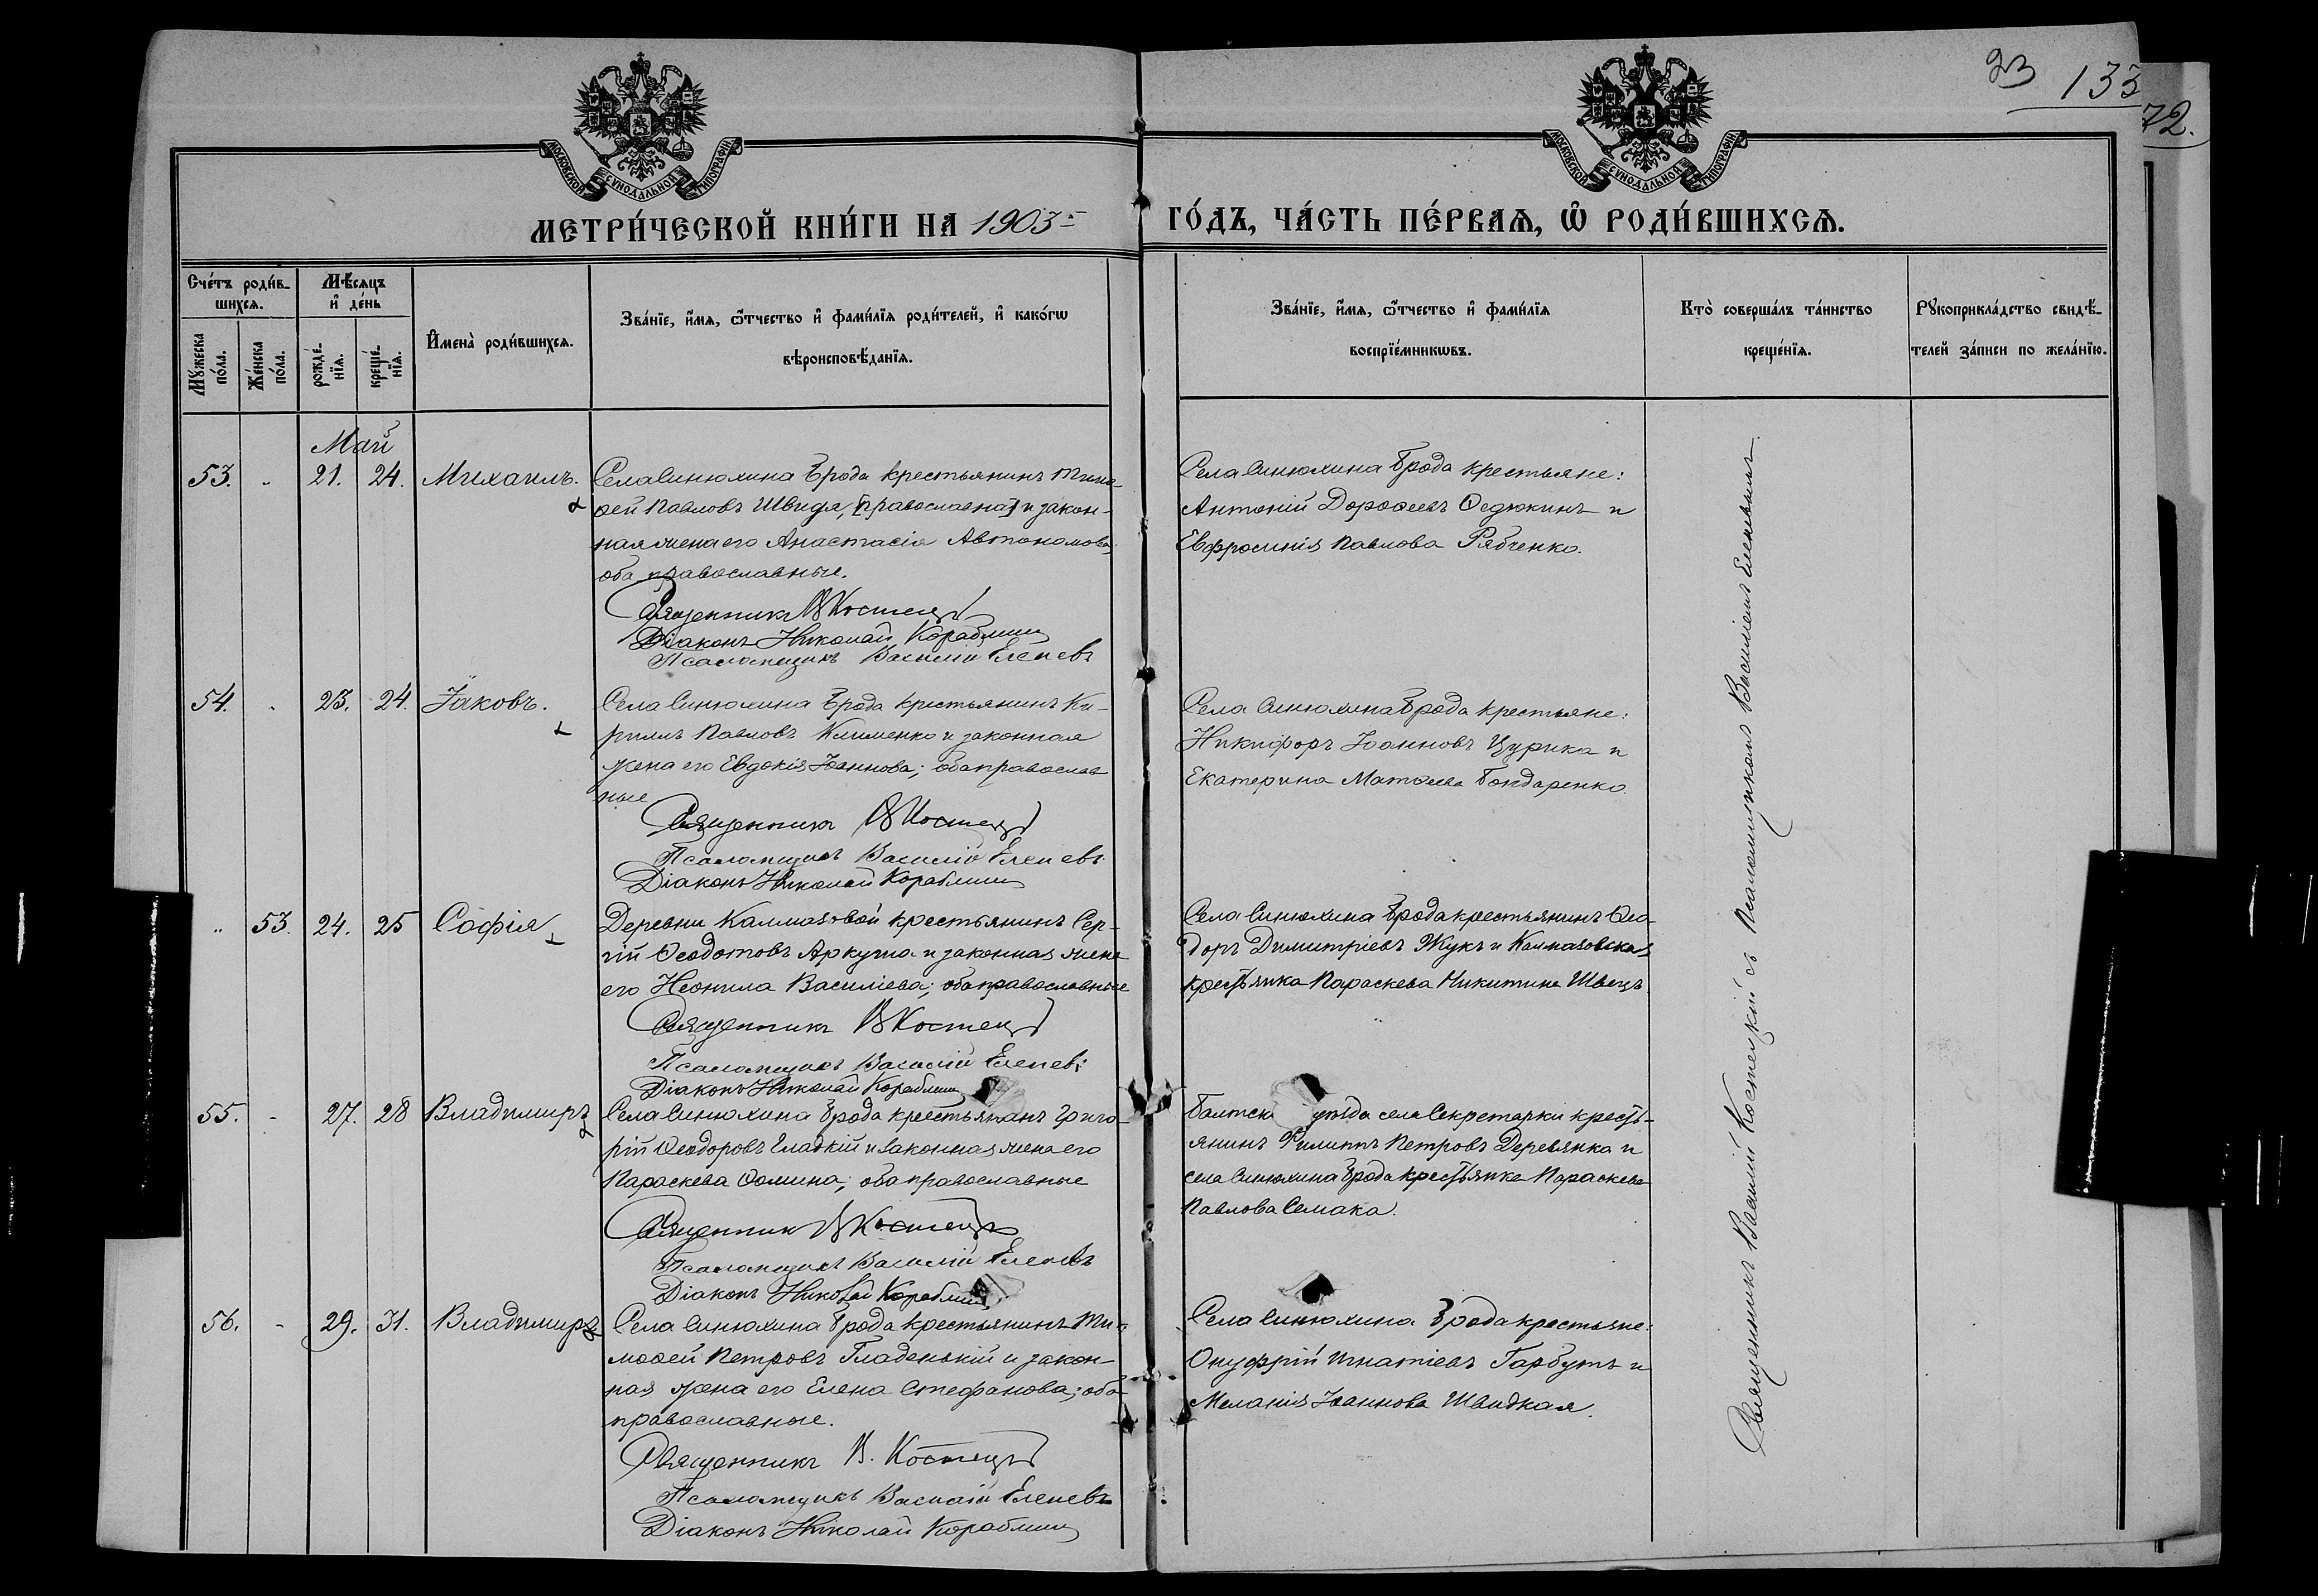 23 133
72.
МОСКОВСКОЙ СѴНОДАЛЬНОЙ ТИПОГРАФІИ
МОСКОВСКОЙ СѴНОДАЛЬНОЙ ТИПОГРАФІИ
МЕТРИ́ЧЕСКОЙ КНИ́ГИ НА 1903 ГО́ДЪ, ЧА́СТЬ ПЕ́РВАѦ, Ѡ҆ РОДИ́ВШИХСѦ.
Сче́тъ роди́в-
шихсѧ.
Мѣ́сѧцъ
и҆ де́нь
Мꙋ́жеска
по́ла.
Же́нска
по́ла.
рожде́-
нїѧ.
креще́-
нїѧ.
И҆мена̀ роди́вшихсѧ.
Зва́нїе, и҆́мѧ, ѻ҆́тчество и҆ фами́лїѧ роди́телей, и҆ како́гѡ
вѣроисповѣ́данїѧ.
Зва́нїе, и҆́мѧ, ѻ҆́тчество и҆ фами́лїѧ
воспрїе́мникѡвъ.
Кто̀ соверша́лъ та́инство
креще́нїѧ.
Рꙋкоприкла́дство свидѣ́-
телей за́писи по жела́нїю.
Май
53. - 21. 24. Михаилъ. Села Синюхина Брода крестьянинъ Тимо-
ѳей Павловъ Швидя, [православна] и закон-
ная жена его Анастасія Автономова,
оба православные.
Священникъ В Костец
Діаконъ Николай Кораблин
Псаломщикъ Василій Еленевъ
Села Синюхина Брода крестьяне:
Антоній Дороѳеевъ Ѳедюкинъ и
Евфросинія Павлова Рябченко.
54. - 23. 24. Іаковъ. Села Синюхина Брода крестьянинъ Ки-
риллъ Павловъ Клименко и законная
жена его Евдокія Іоаннова; оба православ
ные
Священникъ В Костец
Псаломщикъ Василій Еленевъ
Діаконъ Николай Кораблин
Села Синюхина Брода крестьяне:
Никифоръ Іоанновъ Цурика и
Екатерина Матѳеева Бондаренко.
" 53. 24. 25 Софія Деревни Калмазовой крестьянинъ Сер-
гій Ѳеодотовъ Аркуша и законная жена
его Неонила Василіева; оба православные
Священникъ В Костец
Псаломщикъ Василій Еленевъ
Діаконъ Николай Кораблин
Села Синюхина Брода крестьянинъ Ѳео-
доръ Димитріевъ Жукъ и Калмазовская
крестьянка Параскева Никитина Швецъ
55. - 27. 28 Владимиръ Села Синюхина Брода крестьянинъ Григо-
рій Ѳеодоровъ Гладкій и законная жена его
Параскева Ѳомина; оба православные
Священник В Костец
Псаломщикъ Василій Еленевъ
Діаконъ Николай Кораблин
Балтск уѣзда села Секретарки кресть-
янинъ Филиппъ Петровъ Деревянка и
села Синюхина Брода крестьянка Параскева
Павлова Семака.
56. - 29. 31. Владимиръ Села Синюхина Брода крестьянинъ Ти-
моѳей Петровъ Гладенькій и закон-
ная жена его Елена Стефанова; оба
православные.
Священникъ В. Костец
Псаломщикъ Василій Еленевъ
Діаконъ Николай Кораблин
Села Синюхина Брода крестьяне:
Онуфрій Игнатіевъ Гарбутъ и
Меланія Іоаннова Швидкая.
Священникъ Василій Костецкій съ Псаломщикомъ Василіемъ Еленевымъ.